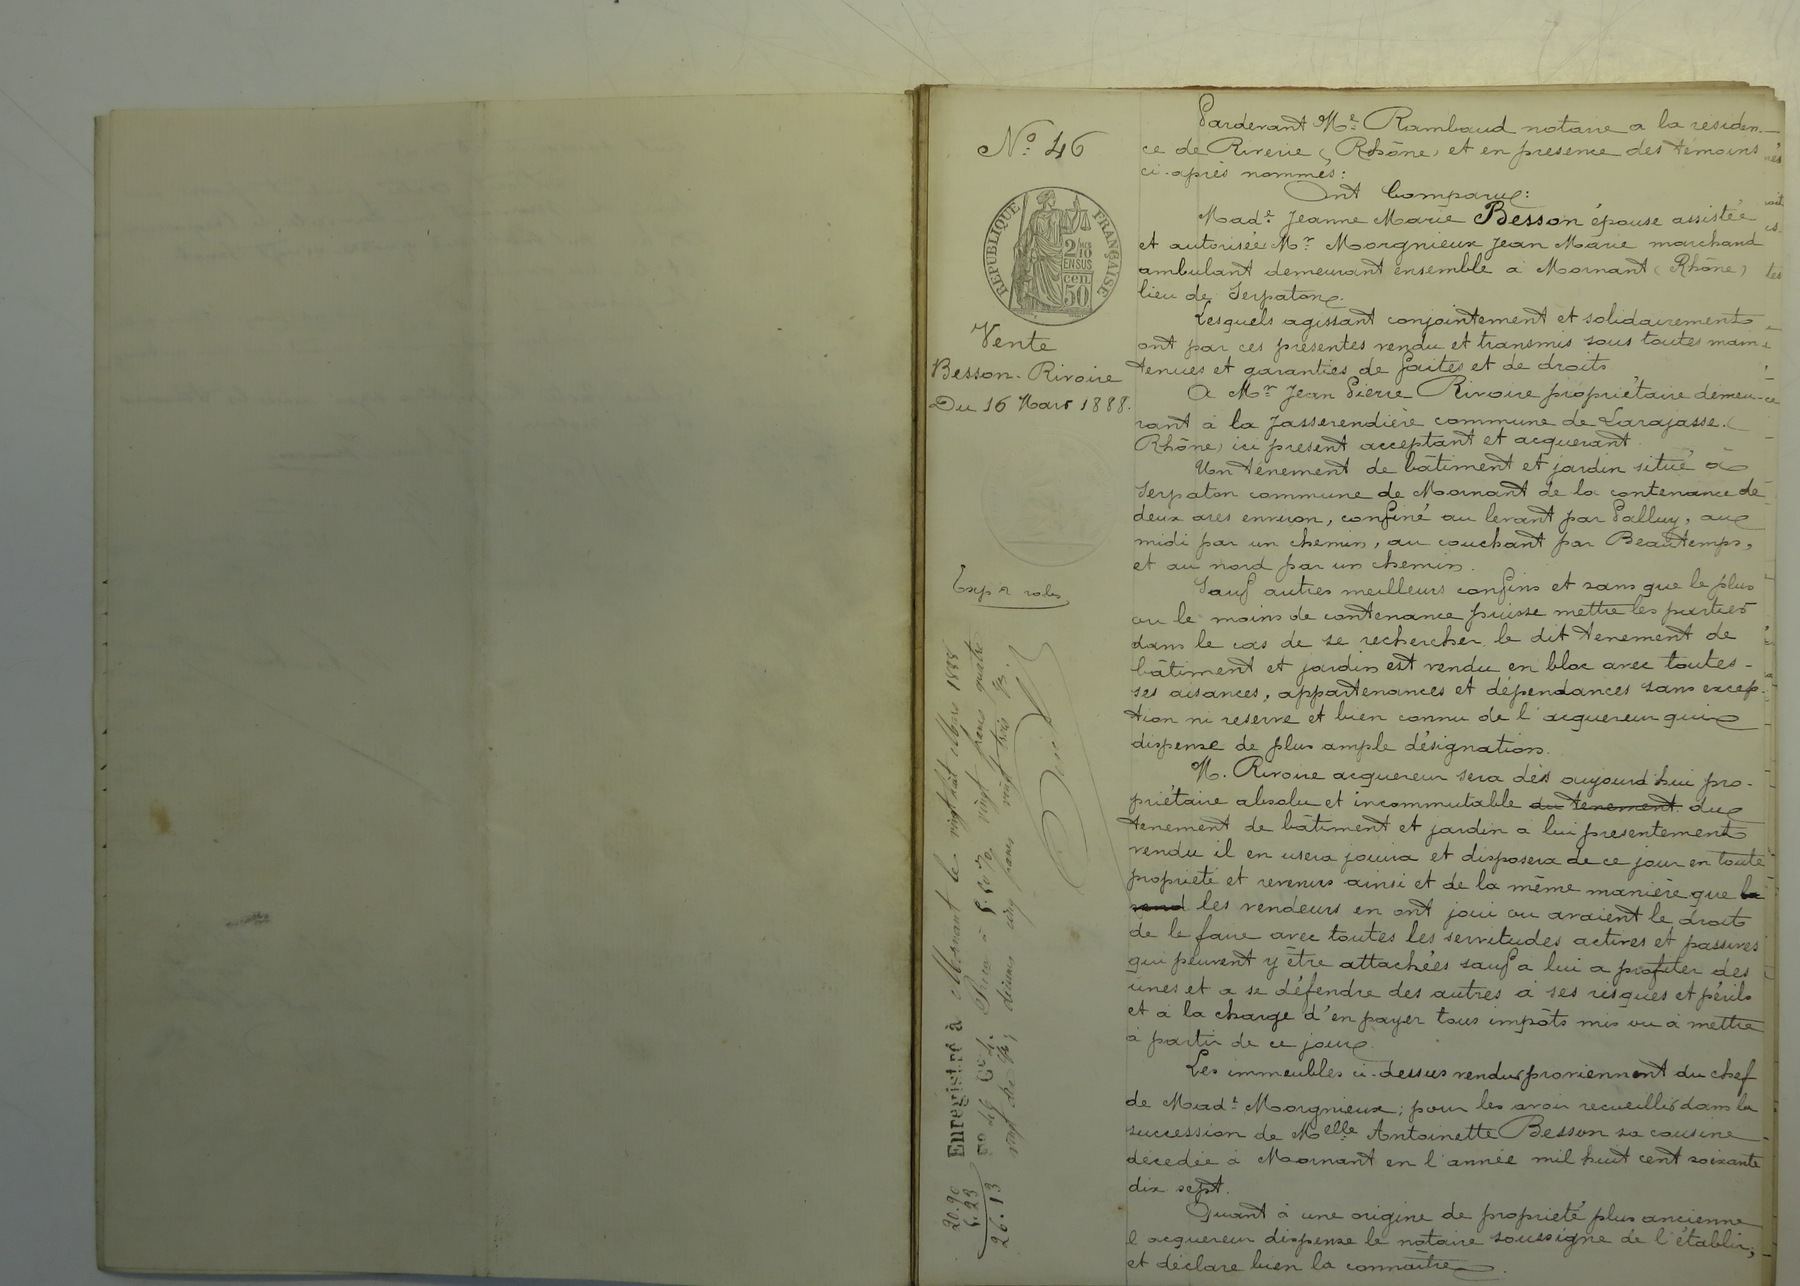 Nº 46
RÉPUBLIQUE FRANÇAISE
2/10
EN SUS
50
cen.
Vente
Besson-Rivoire
Du 16 Mars 1888.
Enregistré à Mornant le vingt huit Mars 1888
20.90
5.23
26.13
Pardevant Me Rambaud notaire a la résiden-
ce de Riverie (Rhône) et en présence des témoins
ci-après nommés:
Ont Comparu:
Made Jeanne Marie Besson épouse assistée
et autorisée Mr Morgnieux Jean Marie marchand
ambulant demeurant ensemble à Mornant (Rhône)
lieu de Serpaton.
Lesquels agissant conjointement et solidairement
ont par ces présentes vendu et transmis sous toutes main-
tenues et garanties de faites et de droits
A Mr Jean Pierre Rivoire propriétaire demeu-
rant à la Jasserendière commune de Larajasse. (
Rhône) ici présent acceptant et acquerant.
Un ténement de bâtiment et jardin situé à
Serpaton commune de Mornant de la contenance de
deux ares environ, confiné au levant par Palluy, au
midi par un chemin, au couchant par Beautemps,
et au nord par un chemin.
Sauf autres meilleurs confins et sans que le plus
ou le moins de contenance puisse mettre les parties
dans le cas de se rechercher le dit tenement de
bâtiment et jardin est vendu en bloc avec toutes
ses aisances, appartenances et dépendances sans excep-
tion ni reserve et bien connu de l'acquereur qui
dispense de plus ample désignation.
M. Rivoire acquereur sera dès aujourd'hui pro-
priétaire absolu et incommutable du tenement du
tenement de bâtiment et jardin a lui presentement
vendu il en usera jouira et disposera de ce jour en toute
propriété et revenus ainsi et de la même manière que la
vend les vendeurs en ont joui ou avaient le droit
de le faire avec toutes les servitudes actives et passives
qui peuvent y être attachées sauf à lui a profiter des
unes et a se défendre des autres à ses risques et périls
et à la charge d'en payer tous impôts mis ou à mettre
à partir de ce jour.
Les immeubles ci-dessus vendus proviennent du chef
de Made Morgnieux; pour les avoir recueillis dans la
succession de Melle Antoinette Besson sa cousine
décédée à Mornant en l'année mil huit cent soixante
dix sept.
Quant à une origine de propriété plus ancienne
l'acquereur dispense le notaire soussigné de l'établir,
et déclare bien la connaître.